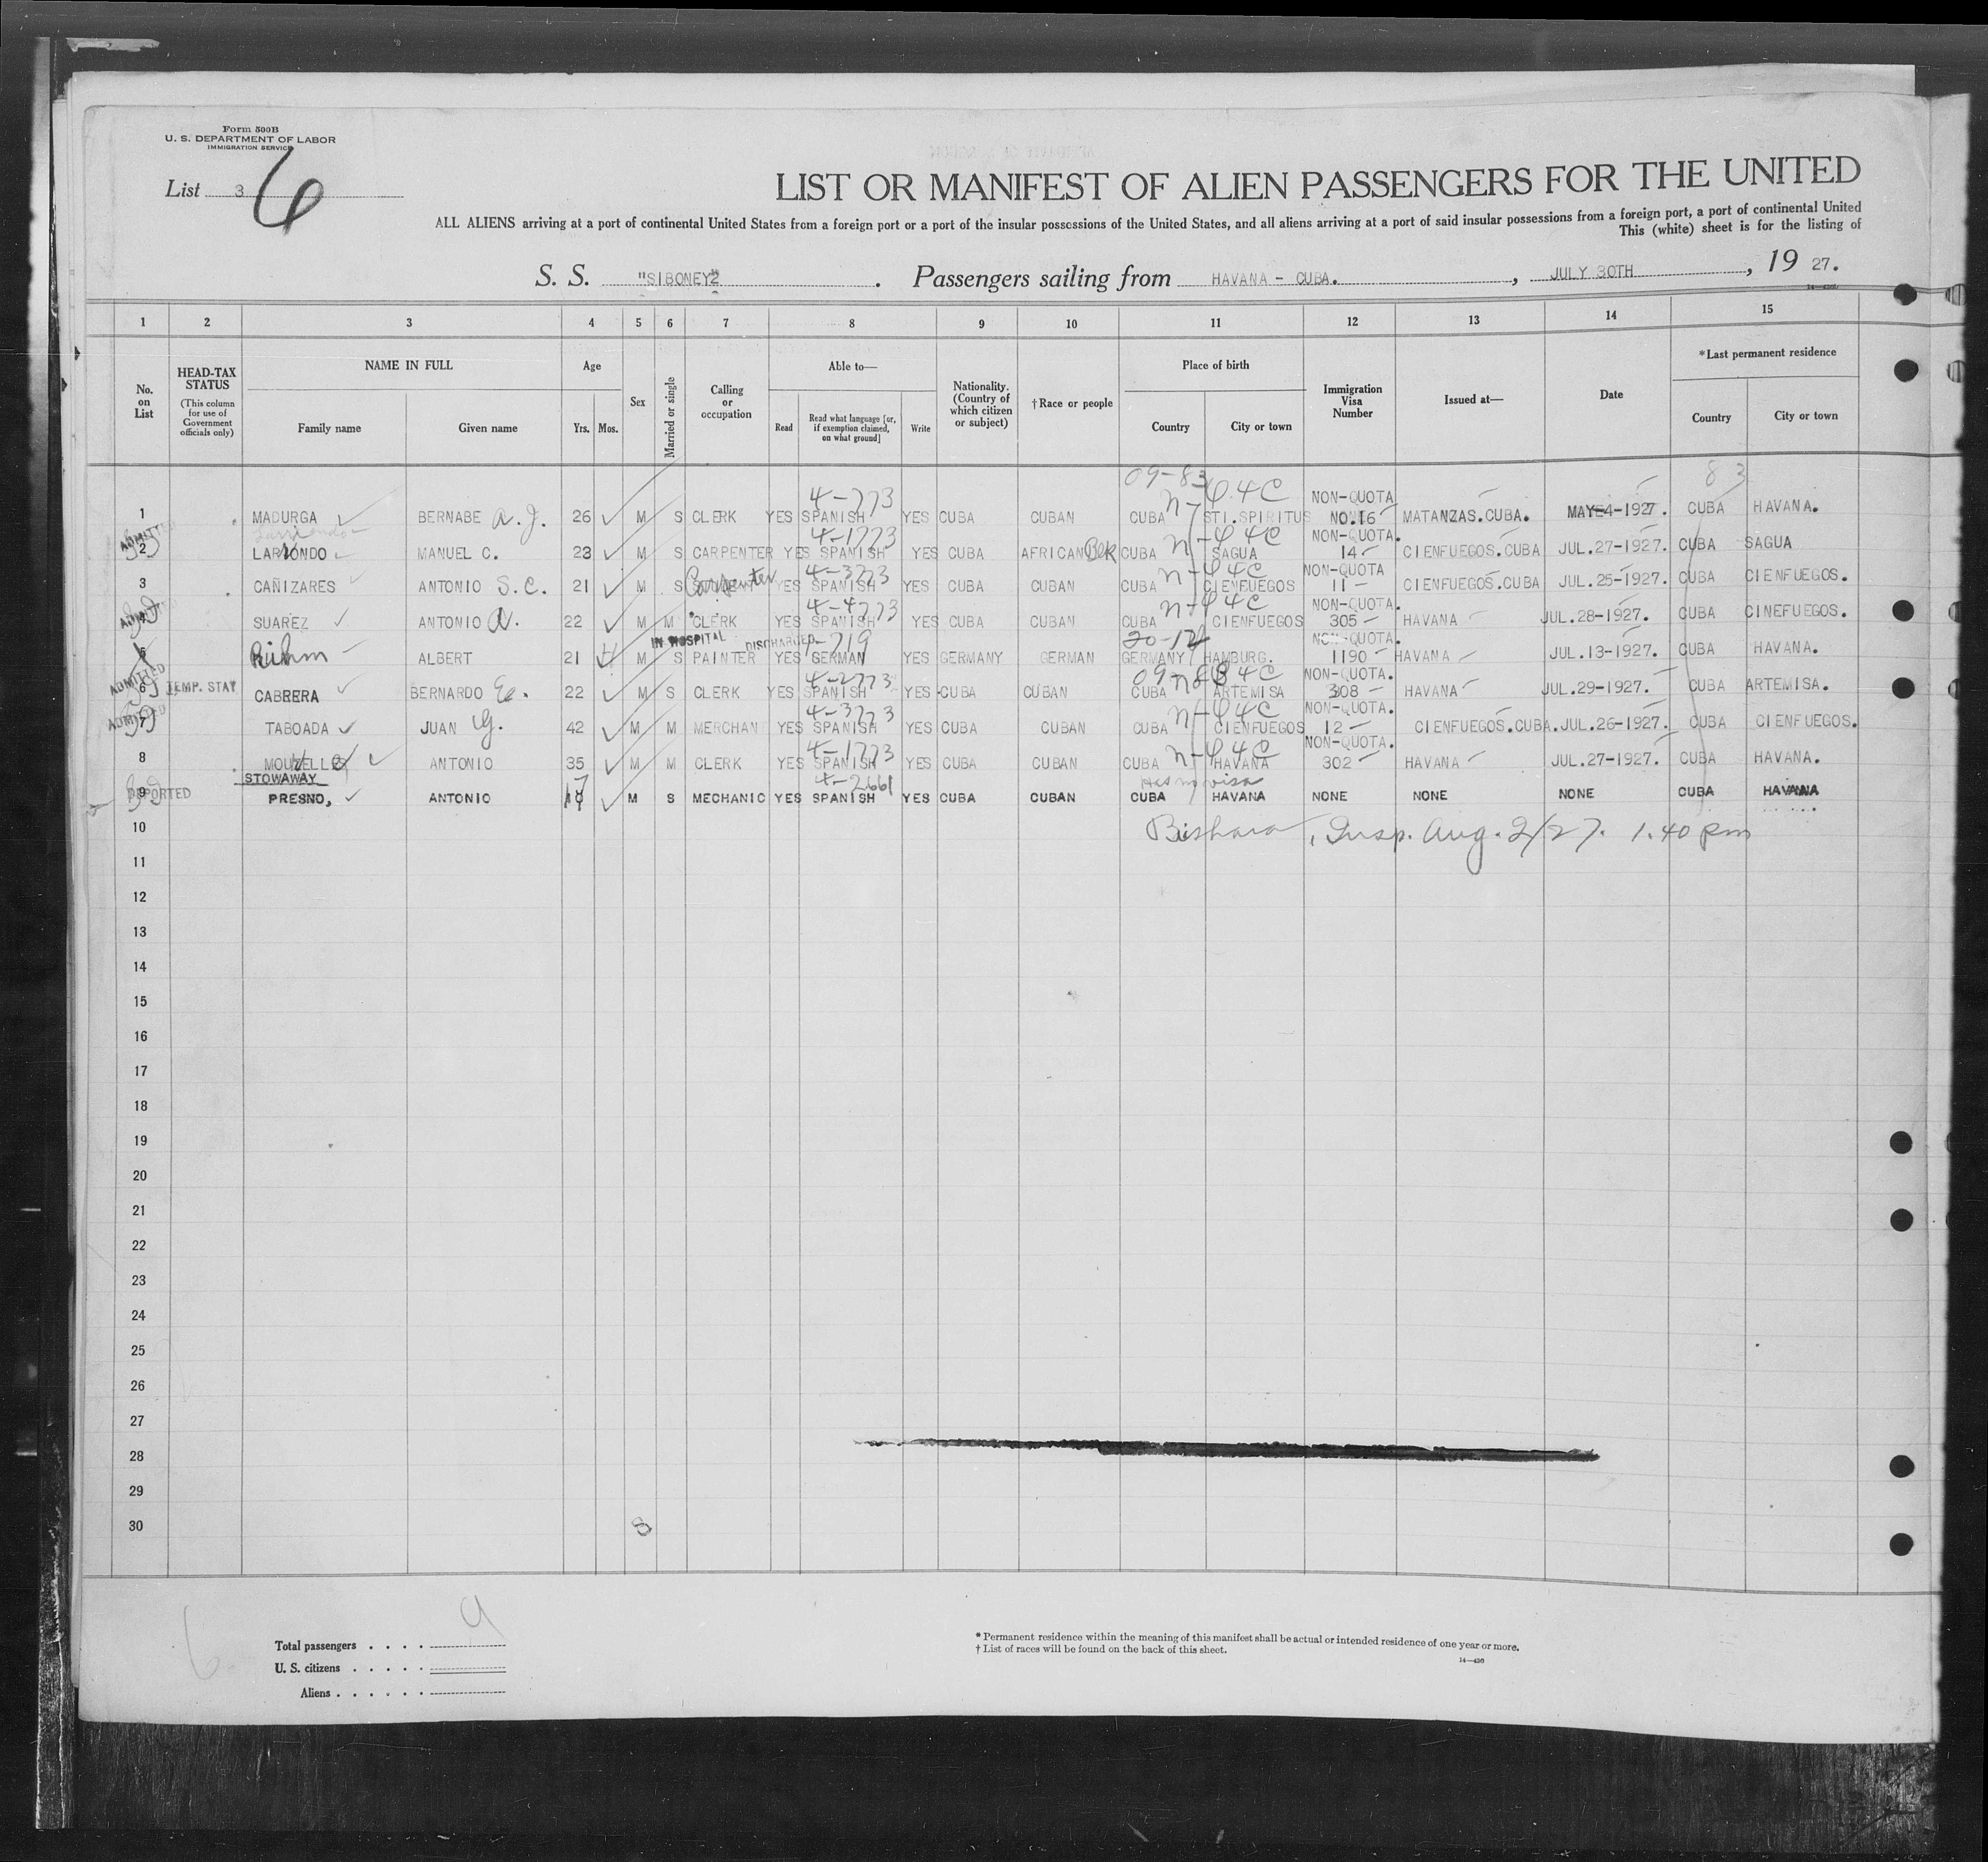 Form 500B
U. S. DEPARTMENT OF LABOR
IMMIGRATION SERVICE
List 3 6
LIST OR MANIFEST OF ALIEN PASSENGERS FOR THE UNITED
ALL ALIENS arriving at a port of continental United States from a foreign port or a port of the insular possessions of the United States, and all aliens arriving at a port of said insular possessions from a foreign port, a port of continental United
This (white) sheet is for the listing of
S. S. "SIBONEY2 . Passengers sailing from HAVANA - CUBA. , JULY 30TH , 19 27.
1 2 3 4 5 6 7 8 9 10 11 12 13 14 15
No. on List
HEAD-TAX STATUS (This column for use of Government officials only)
NAME IN FULL Family name Given name
Age Yrs. Mos.
Sex
Married or single
Calling or occupation
Able to— Read Read what language [or, if exemption claimed, on what ground] Write
Nationality. (Country of which citizen or subject)
†Race or people
Place of birth Country City or town
Immigration Visa Number
Issued at—
Date
*Last permanent residence Country City or town
09-83 83
4-773 n-44C NON-QUOTA
1 MADURGA BERNABE A. J. 26 M S CLERK YES SPANISH YES CUBA CUBAN CUBA STI.SPIRITUS NO.16 MATANZAS.CUBA. MAY 4-1927. CUBA HAVANA.
Larriondo 4-1773 n-44C NON-QUOTA.
ADMITTED 2 LARIONDO MANUEL C. 23 M S CARPENTER YES SPANISH YES CUBA AFRICAN Blk CUBA SAGUA 14 CIENFUEGOS.CUBA JUL.27-1927. CUBA SAGUA
Carpenter 4-3773 n-44C NON-QUOTA
3 CAÑIZARES ANTONIO S.C. 21 M S YES SPANISH YES CUBA CUBAN CUBA CIENFUEGOS 11 CIENFUEGOS.CUBA JUL.25-1927. CUBA CIENFUEGOS.
4-4773 n-44C NON-QUOTA.
ADMITTED 4 SUAREZ ANTONIO N. 22 M M CLERK YES SPANISH YES CUBA CUBAN CUBA CIENFUEGOS 305 HAVANA JUL.28-1927. CUBA CINEFUEGOS.
IN HOSPITAL DISCHARGED 4-719 NON-QUOTA.
5 Rühm ALBERT 21 M S PAINTER YES GERMAN YES GERMANY GERMAN GERMANY HAMBURG. 1190 HAVANA JUL.13-1927. CUBA HAVANA.
4-2773 09-83 44C NON-QUOTA.
ADMITTED 6 TEMP. STAY CABRERA BERNARDO E. 22 M S CLERK YES SPANISH YES CUBA CUBAN CUBA ARTEMISA 308 HAVANA JUL.29-1927. CUBA ARTEMISA.
4-3773 n-44C NON-QUOTA.
ADMITTED 7 TABOADA JUAN G. 42 M M MERCHAN YES SPANISH YES CUBA CUBAN CUBA CIENFUEGOS 12 CIENFUEGOS.CUBA. JUL.26-1927. CUBA CIENFUEGOS.
4-1773 n-44C NON-QUOTA.
8 ANTONIO 35 M M CLERK YES SPANISH YES CUBA CUBAN CUBA HAVANA 302 HAVANA JUL.27-1927. CUBA HAVANA.
STOWAWAY 4-2661 Has no visa
DEPORTED 9 PRESNO, ANTONIO 17 M S MECHANIC YES SPANISH YES CUBA CUBAN CUBA HAVANA NONE NONE NONE CUBA HAVANA
10 Bishara, Insp. Aug. 2/27. 1.40 pm
11
12
13
14
15
16
17
18
19
20
21
22
23
24
25
26
27
28
29
30 8
Total passengers . . . . 9
U. S. citizens . . . . .
Aliens . . . . . .
6
* Permanent residence within the meaning of this manifest shall be actual or intended residence of one year or more.
† List of races will be found on the back of this sheet.
14—430